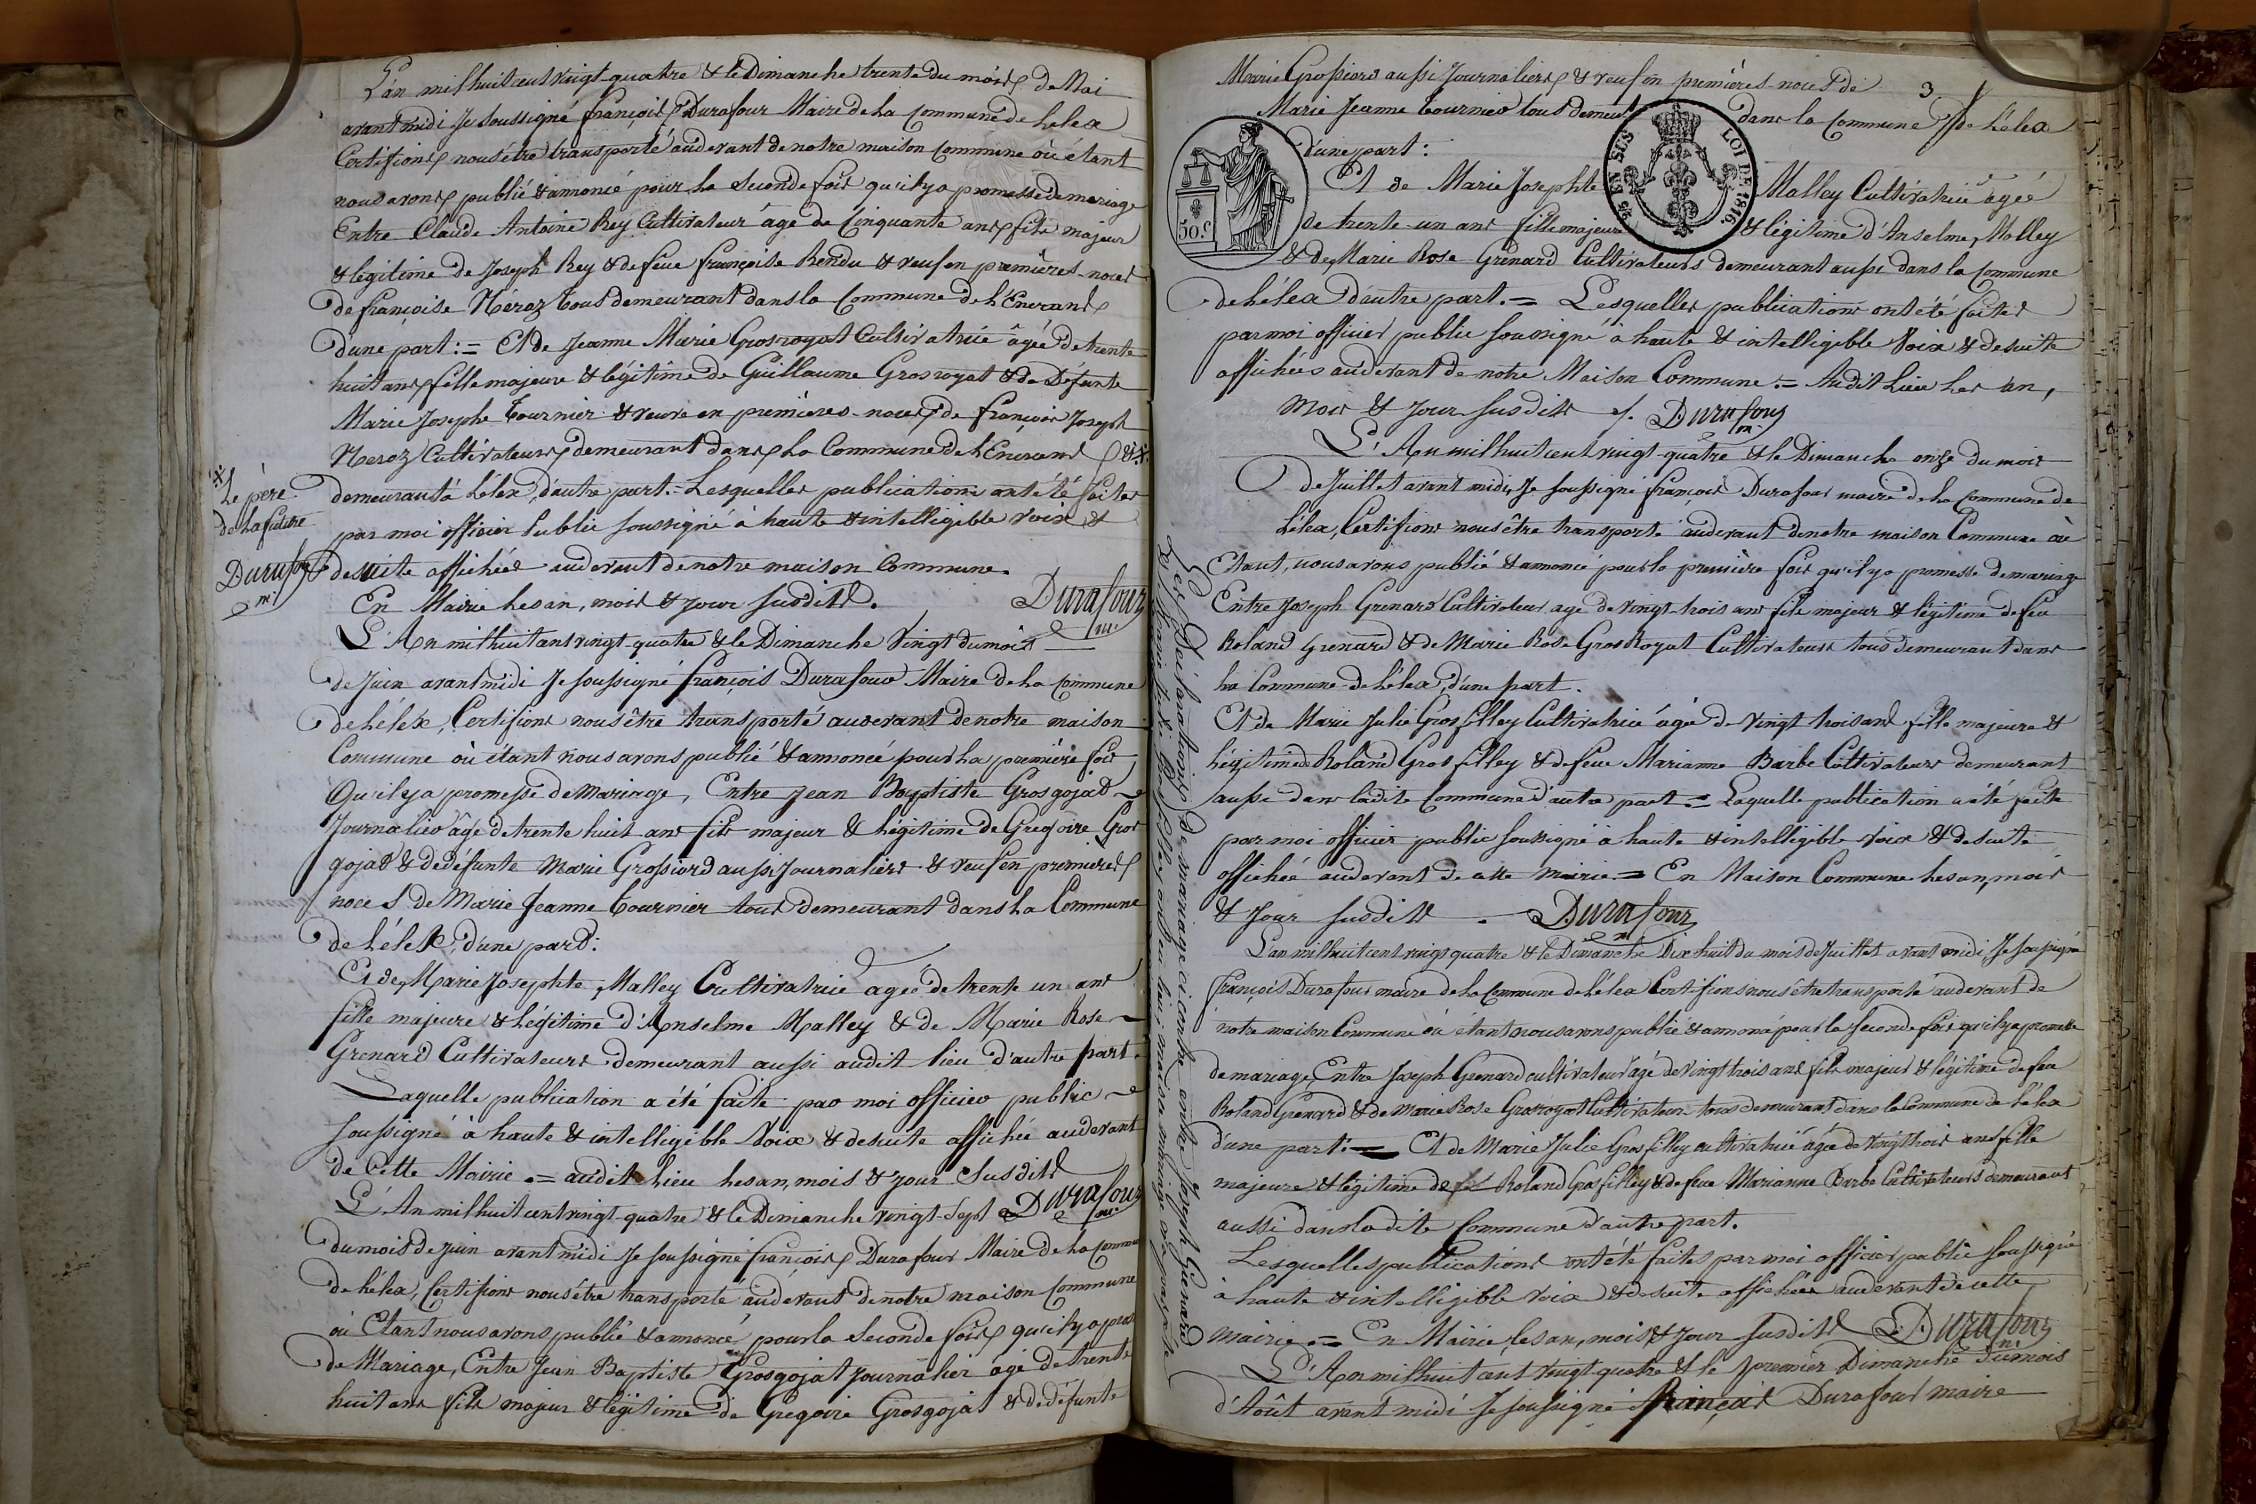 L'an mil huit cent vingt-quatre & le Dimanche trente du mois de Mai
avant midi Je soussigné françois Durafour Maire de la Commune de Lélex
Certifions nous être transporté audevant de notre maison Commune où étant
nous avons publié & annoncé pour la seconde fois qu'il y a promesse de mariage
Entre Claude Antoine Rey Cultivateur âgé de Cinquante ans fils majeur
& légitime de Joseph Rey & de feue françoise Rendu & veuf en premières noces
de françoise Néroz tous demeurant dans la Commune de
d'une part := Et de Jeanne Marie Grosroyat Cultivatrice âgée de trente
huit ans fille majeure & légitime de Guillaume Grosroyat & de Défunte
Marie Josephe Tournier & veuve en premières noces de françois Joseph
Neroz Cultivateurs demeurant dans la Commune de
* Le père
de la future
Durafour
m.
demeurant à Lélex, d'autre part.= Lesquelles publications ont été faites
par moi officier Public soussigné à haute & intelligible voix, &
de suite affichées audevant de notre maison Commune.
En Mairie les an, mois & jour susdits. Durafour
m.
L'An mil huit cent vingt-quatre & le Dimanche Vingt du mois
de Juin avant midi Je soussigné françois Durafour Maire de la Commune
de Lélex, Certifions nous être transporté audevant de notre maison
Commune où étant nous avons publié & annoncé pour la première fois
Qu'il y a promesse de Mariage, Entre Jean Baptiste Grosgojat
Journalier âgé de trente huit ans fils majeur & légitime de Gregoire Gros
gojat & de défunte Marie Grossiord aussi Journaliers & veuf en premières
noces de Marie Jeanne Tournier tous demeurant dans la Commune
de Lélex, d'une part:
Et de Marie Josephte Malley Cultivatrice agée de trente un ans
fille majeure & légitime d'Anselme Malley & de Marie Rose
Grenard Cultivateurs demeurant aussi audit lieu d'autre part.
Laquelle publication a été faite par moi officier public
soussigné à haute & intelligible Voix & de suite affichée audevant
de Cette Mairie = audit lieu les an, mois & jour susdits
Durafour
m.
L'An mil huit cent vingt-quatre & le Dimanche vingt-sept
du mois de Juin avant midi Je soussigné françois Durafour Maire de la Commune
de Lélex, Certifions nous être transporté audevant de notre maison Commune
où Etant nous avons publié & annoncé pour la seconde fois qu'il y a
de Mariage, Entre Jean Baptiste Grosgojat Journalier âgé de trente
huit ans fils majeur & légitime de Gregoire Grosgojat & de défunte
Marie Grossiord aussi Journaliers & veuf en premières noces de 3
Marie Jeanne Tournier tous demeurt dans la Commune de Lélex
d'une part :
50.C
5.es EN SUS LOI DE 1816.
Et de Marie Josephte Malley Cultivatrice agée
de trente-un ans fille majeure & légitime d'Anselme Malley
& de Marie Rose Grenard Cultivateurs demeurant aussi dans la Commune
de Lélex d'autre part.= Lesquelles publications ont été faites
par moi officier public soussigné à haute & intelligible Voix & de suite
affichées audevant de notre Maison Commune = Audit Lieu les an,
mois & jour susdits Durafour
m.
L'An mil huit cent vingt-quatre & le Dimanche onze du mois
de Juillet avant midi, Je soussigné françois Durafour maire de la Commune de
Lélex, Certifions nous être transporté audevant de notre maison Commune où
Etant, nous avons publié & annoncé pour la première fois qu'il y a promesse de mariage
Entre Joseph Grenard Cultivateur agé de vingt-trois ans fils majeur & légitime de feu
Roland Grenard & de Marie Rose GrosRoyat Cultivateurs tous demeurant dans
la Commune de Lélex, d'une part.
Et de Marie Julie Grosfilley Cultivatrice âgée de vingt trois ans fille majeure &
légitime de Roland Grosfilley & de feue Marianne Barbe Cultivateurs demeurant
aussi dans ladite Commune d'autre part = Laquelle publication a été faite
par moi officier public soussigné à haute & intelligible voix & de suite
affichée audevant de cette Mairie = En Maison Commune les an, mois
& jour susdits. Durafour
m.
L'an mil huit cent vingt quatre & le Dimanche Dix huit du mois de Juillet avant midi, Je soussigné
françois Durafour maire de la Commune de Lélex Certifions nous être transporté audevant de
notre maison Commune où étant nous avons publié & annoncé pour la seconde fois qu'il y a promesse
de mariage, Entre Joseph Grenard cultivateur âgé de vingt trois ans fils majeur & légitime de feu
Roland Grenard & de Marie Rose Grosroyat Cultivateurs tous demeurant dans la Commune de Lélex
d'une part. = Et de Marie Julie Grosfilley cultivatrice âgée de vingt trois ans fille
majeure & légitime de Roland Grosfilley & de feue Marianne Barbe Cultivateurs demeurant
aussi dans ladite Commune d'autre part.
Lesquelles publications ont été faites par moi officier public soussigné
à haute & intelligible voix & de suite affichées audevant de cette
Mairie = En Mairie, les an, mois & jour susdits Durafour
m.
L'An mil huit cent vingt-quatre & le premier Dimanche du mois
d'Août avant midi Je soussigné françois Durafour maire
Les Déclarations de mariage ci contre entre Joseph Grenard